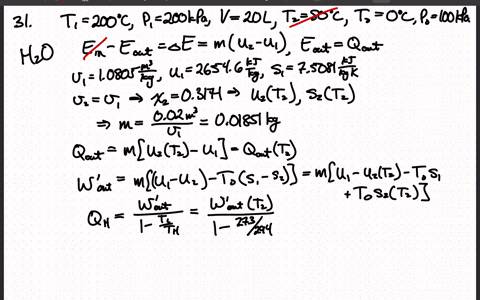 31. T₁=200°C, P₁=200kPa, V=20L, T₂=80°C, T₀=0°C, P₀=100kPa
H₂O E_in - E_out = ΔE = m(u₂-u₁), E_out = Q_out
v₁=1.0805 m³/kg, u₁=2654.6 kJ/kg, s₁=7.5081 kJ/kgK
v₂ = v₁ → x₂=0.3171 ⇒ u₂(T₂), s₂(T₂)
⇒ m = 0.02m³/v₁ = 0.01851kg
Q_out = m[u₂(T₂) - u₁] = Q_out(T₂)
W'_out = m[(u₁-u₂) - T₀(s₁-s₂)] = m[u₁-u₂(T₂)-T₀s₁
+T₀s₂(T₂)]
Q_H = W'_out/(1 - T_L/T_H) = W'_out(T₂)/(1 - 273/294)